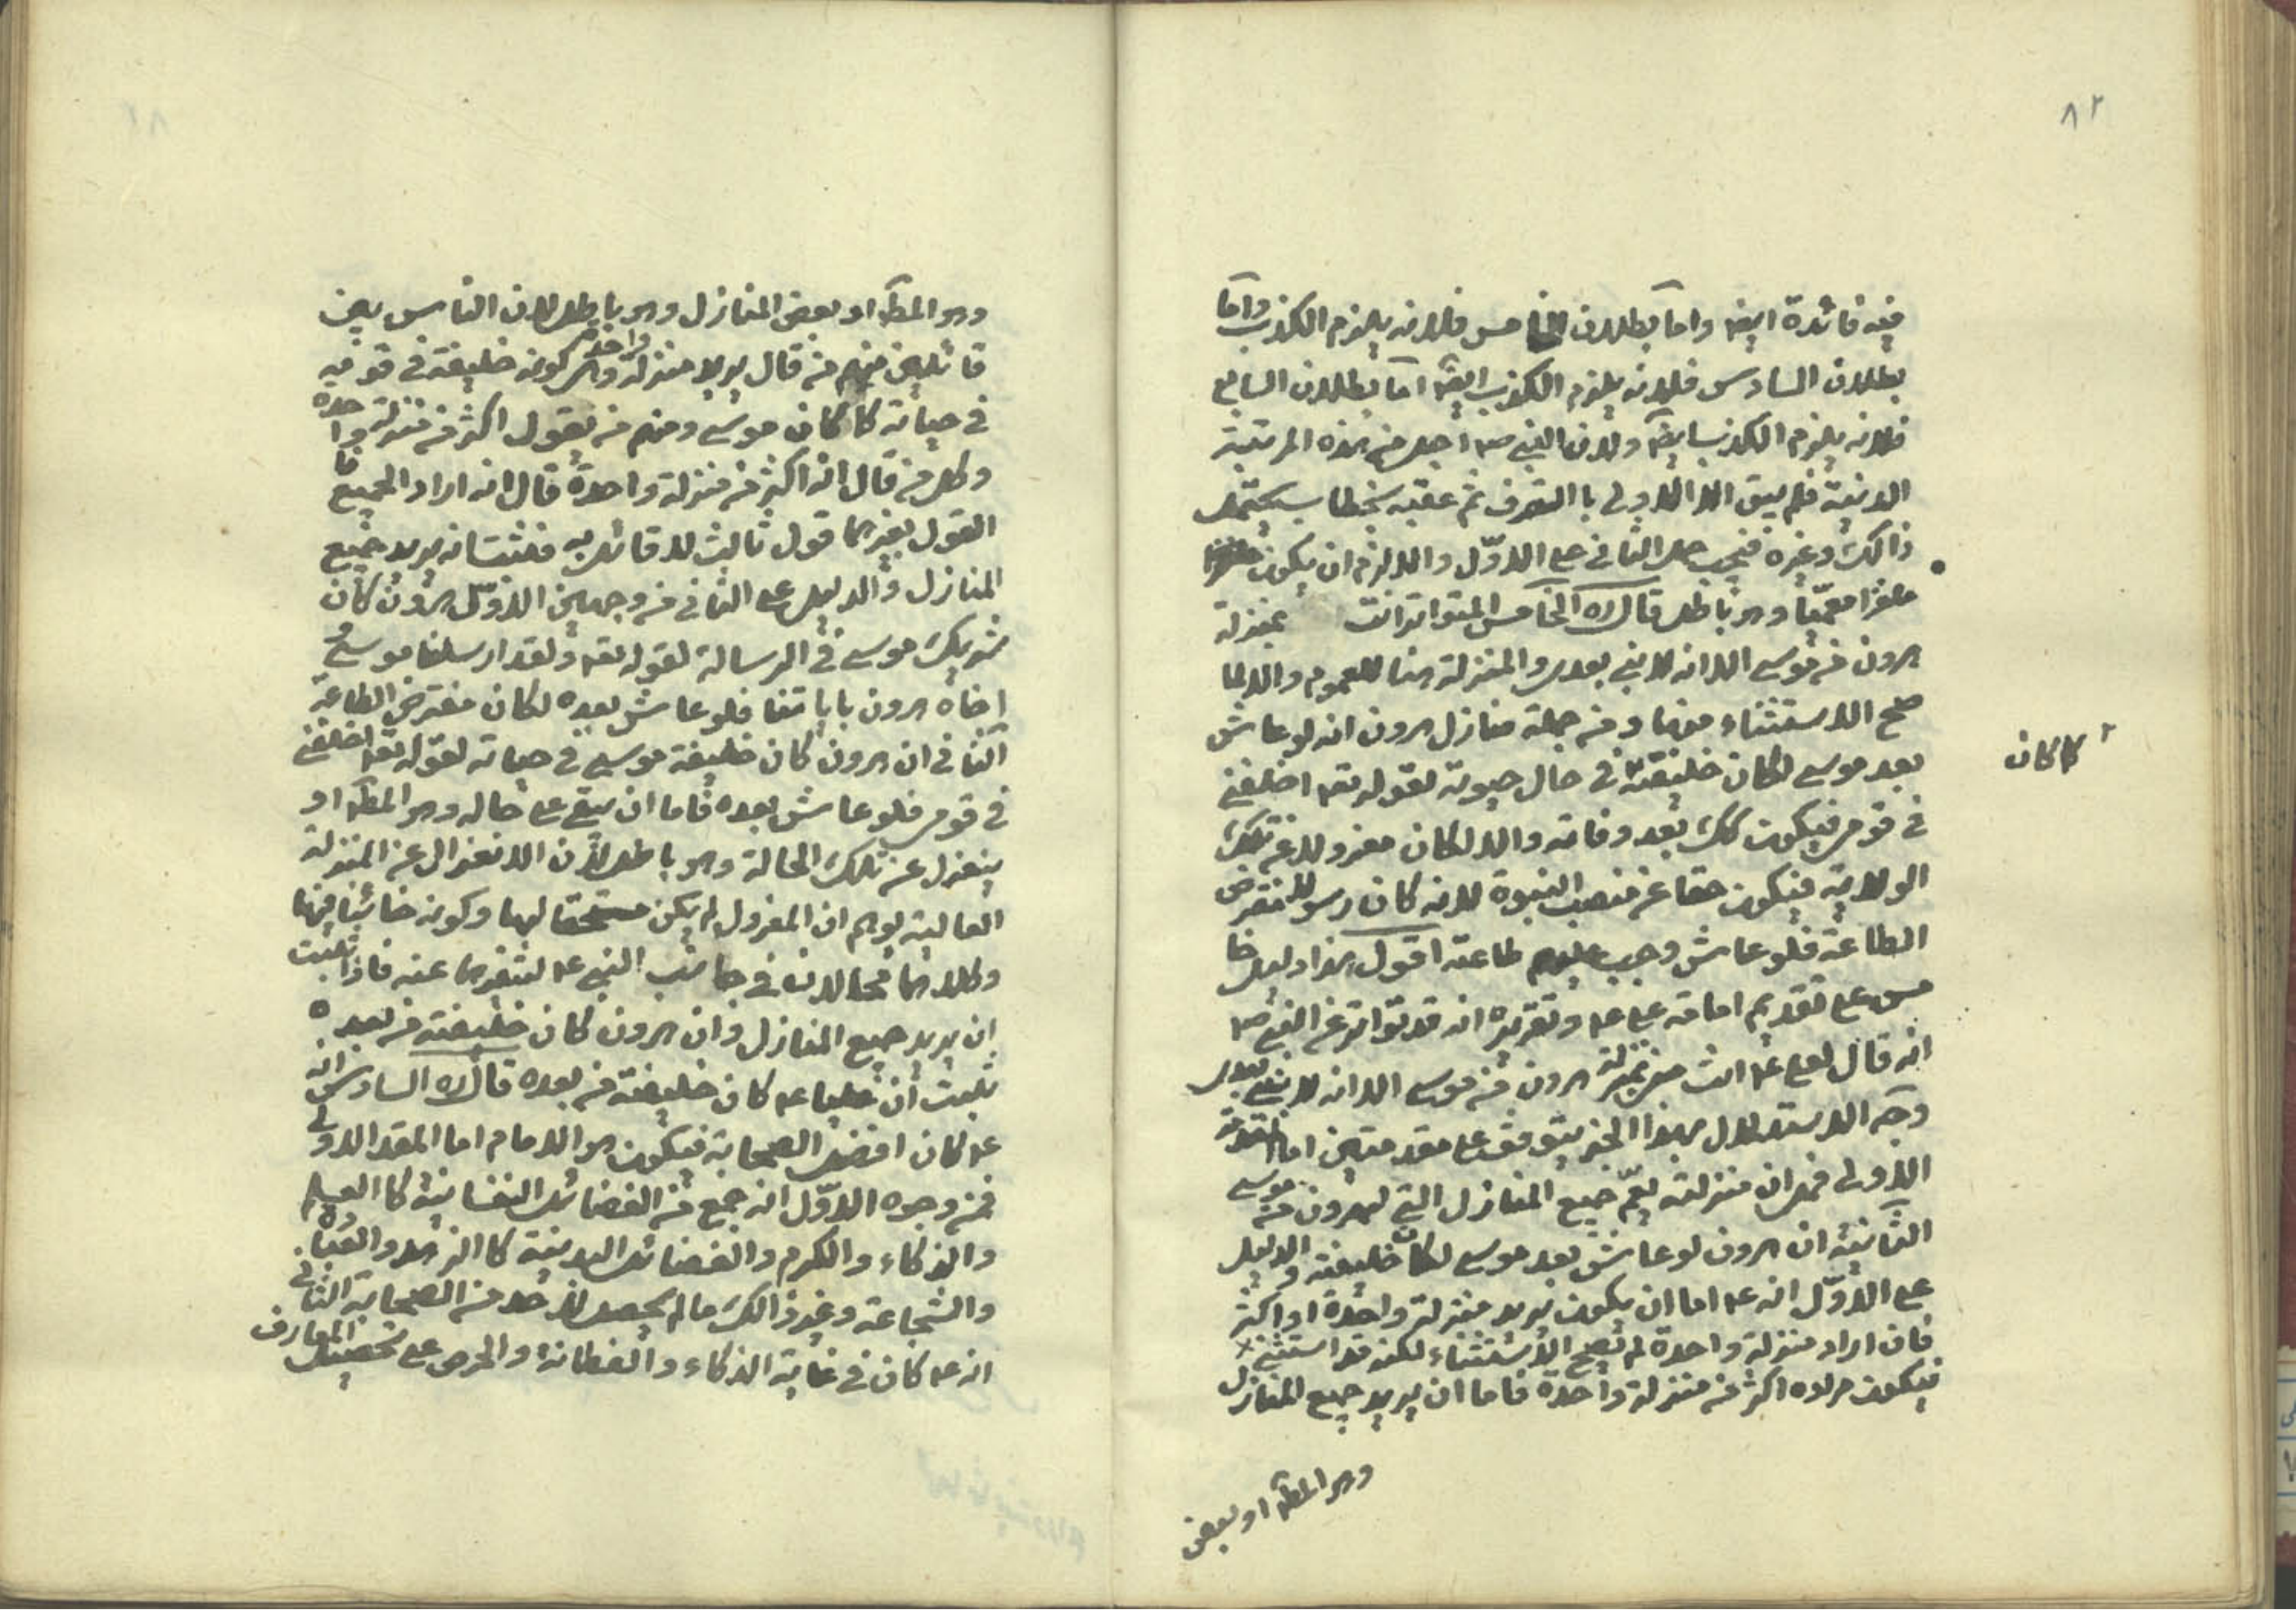 ٨٢
فيه فائدة ايضا واما بطلان الخامس فلانه يلزم الكذب واما
بطلان السادس فلانه يلزم الكذب ايضا اما بطلان السابع
فلانه يلزم الكذب ايضا ولان النبي ص اجل من هذه المرتبة
الدنية فلم يبق الا الاولى بالتصرف ثم عقبه بخطاب يحتمل
ذالك وغيره فيجب حمل الثاني على الاوّل والا لزم ان يكون
ملغزا معمّيا وهو باطل قال ره الخامس المتواتر انت بمنزلة
هرون من موسى الا انه لا نبي بعدي والمنزلة هنا للعموم والا لما
صح الاستثناء منها ومن جملة منازل هرون انه لو عاش
بعد موسى لكان خليفته في حال حيوته لقوله تعه اخلفني
٢ كما كان
في قومي فيكون كك بعد وفاته والا لكان معزولا عن تلك
الولاية فيكون حطا عن منصب النبوة لانه كان رسولا مفترض
الطاعة فلو عاش وجب عليهم طاعته اقول هذا دليل خا
مس على تقديم امامة علي عم وتقريره انه قد تواتر عن النبي ص
انه قال لعلي عم انت مني بمنزلة هرون من موسى الا انه لا نبي بعدي
وجه الاستدلال بهذا الخبر يتوقف على مقدمتين اما المقدمة
الاولى فهي ان منزلته تعمّ جميع المنازل التي لهرون من موسى
الثانية ان هرون لو عاش بعد موسى لكان خليفته والدليل
على الاوّل انه عم اما ان يكون يريد منزلة واحدة او اكثر
فان اراد منزلة واحدة لم تصح الاستثناء لكنه قد استثنى
فيكون مراده اكثر من منزلة واحدة فاما ان يريد جميع المنازل
وهو المطـ او بعض
وهو المطـ او بعض المنازل وهو باطل لان الناس بين
قائلين منهم من قال يريد منزلة واحدة وهي كونه خليفة في قومه
في حياته كما كان موسى ومنهم من يقول اكثر من منزلة واحدة
وكل من قال انه اكثر من منزلة واحدة قال انه اراد الجميع فا
القول بغيرهما قول ثالث لا قائل به فثبت انه يريد جميع
المنازل والدليل على الثاني من وجهين الاوّل هرون كان
شريك موسى في الرسالة لقوله تعه ولقد ارسلنا موسى و
اخاه هرون باياتنا فلو عاش بعده لكان مفترض الطاعة
الثاني ان هرون كان خليفة موسى في حياته لقوله تعه اخلفني
في قومي فلو عاش بعده فاما ان يبقى على حاله وهو المطـ او
ينعزل عن تلك الحالة وهو باطل لان الانعزال عن المنزلة
العالية يوهم ان المعزول لم يكن مستحقا لها وكونه خائنا فيها
وكلاهما محالان في جانب النبي عم لتنفيرهما عنه فاذا ثبت
ان يريد جميع المنازل وان هرون كان خليفته من بعده
ثبت ان عليا عم كان خليفته من بعده قال ره السادس انه
عم كان افضل الصحابة فيكون هو الامام اما المقد الاولى
فمن وجوه الاوّل انه جمع من الفضائل النفسانية كا العلم
والذكاء والكرم والفضائل البدنية كا الزهد والعبا
والشجاعة وغير ذالك ما لم يحصل لاحد من الصحابة الثاني
انه عم كان في غاية الذكاء والفطانة والحرص على تحصيل المعارف